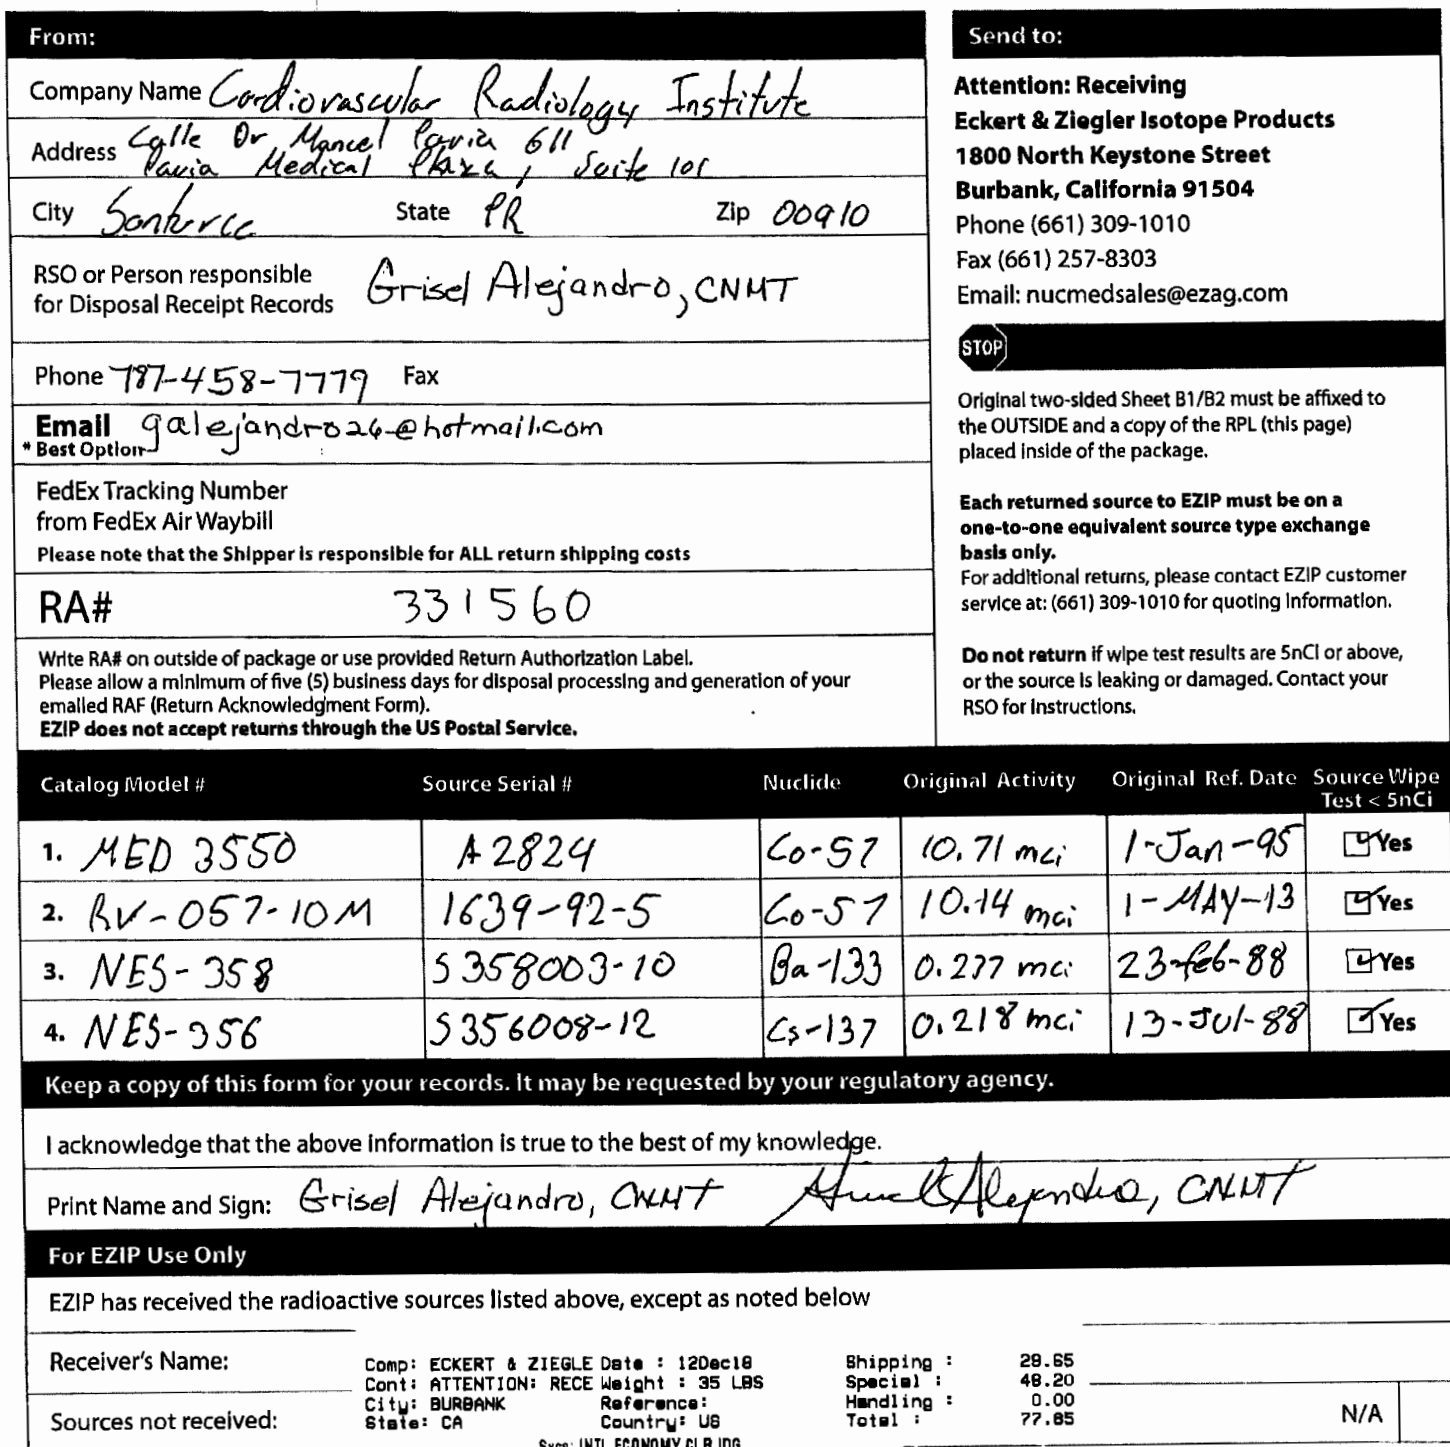 From:
Company Name Cardiovascular Radiology Institute
Address Calle Dr Manuel Pavia 611
Pavia Medical Plaza, Suite 101
City Santurce State PR Zip 00910
RSO or Person responsible
for Disposal Receipt Records Grisel Alejandro, CNMT
Phone 787-458-7779 Fax
Email galejandro26@hotmail.com
* Best Option
FedEx Tracking Number
from FedEx Air Waybill
Please note that the Shipper is responsible for ALL return shipping costs
RA# 331560
Write RA# on outside of package or use provided Return Authorization Label.
Please allow a minimum of five (5) business days for disposal processing and generation of your
emailed RAF (Return Acknowledgment Form).
EZIP does not accept returns through the US Postal Service.
Send to:
Attention: Receiving
Eckert & Ziegler Isotope Products
1800 North Keystone Street
Burbank, California 91504
Phone (661) 309-1010
Fax (661) 257-8303
Email: nucmedsales@ezag.com
STOP
Original two-sided Sheet B1/B2 must be affixed to
the OUTSIDE and a copy of the RPL (this page)
placed inside of the package.
Each returned source to EZIP must be on a
one-to-one equivalent source type exchange
basis only.
For additional returns, please contact EZIP customer
service at: (661) 309-1010 for quoting information.
Do not return if wipe test results are 5nCi or above,
or the source is leaking or damaged. Contact your
RSO for instructions.
Catalog Model # Source Serial # Nuclide Original Activity Original Ref. Date Source Wipe
Test < 5nCi
1. MED 3550 A2824 Co-57 10.71 mci 1-Jan-95 Yes
2. RV-057-10M 1639-92-5 Co-57 10.14 mci 1-MAY-13 Yes
3. NES-358 S358003-10 Ba-133 0.277 mci 23-feb-88 Yes
4. NES-356 S356008-12 Cs-137 0.218 mci 13-Jul-88 Yes
Keep a copy of this form for your records. It may be requested by your regulatory agency.
I acknowledge that the above information is true to the best of my knowledge.
Print Name and Sign: Grisel Alejandro, CNMT Grisel Alejandro, CNMT
For EZIP Use Only
EZIP has received the radioactive sources listed above, except as noted below
Receiver's Name:
Sources not received: N/A
Comp: ECKERT & ZIEGLE Date : 12Dec18 Shipping : 29.65
Cont: ATTENTION: RECE Weight : 35 LBS Special : 48.20
City: BURBANK Reference: Handling : 0.00
State: CA Country: US Total : 77.85
Svcs: INTL ECONOMY